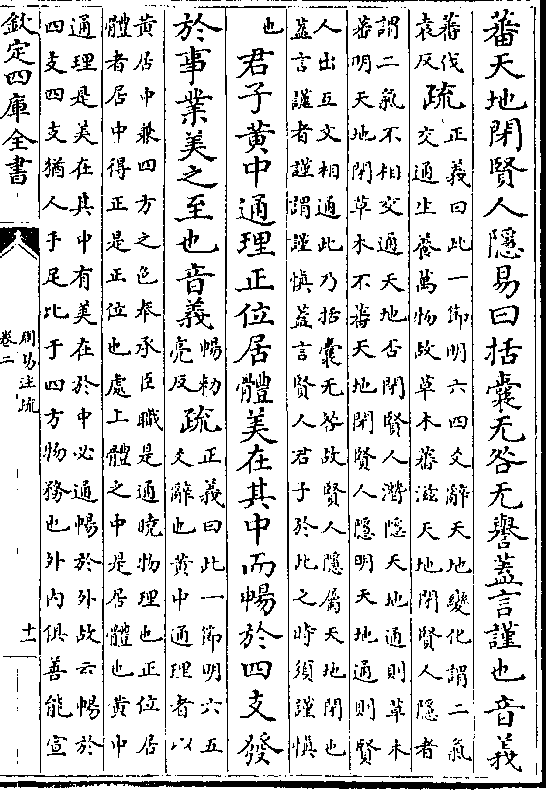 蕃天地閉賢人隱易曰括囊无咎无譽蓋言謹也音義
蕃伐
袁反
疏
正義曰此一節明六四爻辭天地變化謂二氣
交通生養萬物故草木蕃滋天地閉賢人隱者
謂二氣不相交通天地否閉賢人潛隱天地通則草木
蕃明天地閉草木不蕃天地閉賢人隱明天地通則賢
人出互文相通此乃括囊无咎故賢人隱屬天地閉也
蓋言謹者謹謂謹慎蓋言賢人君子於此之時須謹慎
也
君子黄中通理正位居體美在其中而暢於四支發
於事業美之至也音義
暢勑
亮反
疏
正義曰此一節明六五
爻辭也黄中通理者以
黄居中兼四方之色奉承臣職是通曉物理也正位居
體者居中得正是正位也處上體之中是居體也黄中
通理是美在其中有美在於中必通暢於外故云暢於
四支四支猶人手足比于四方物務也外内俱善能宣
欽定四庫全書
周易注疏
卷二
十一